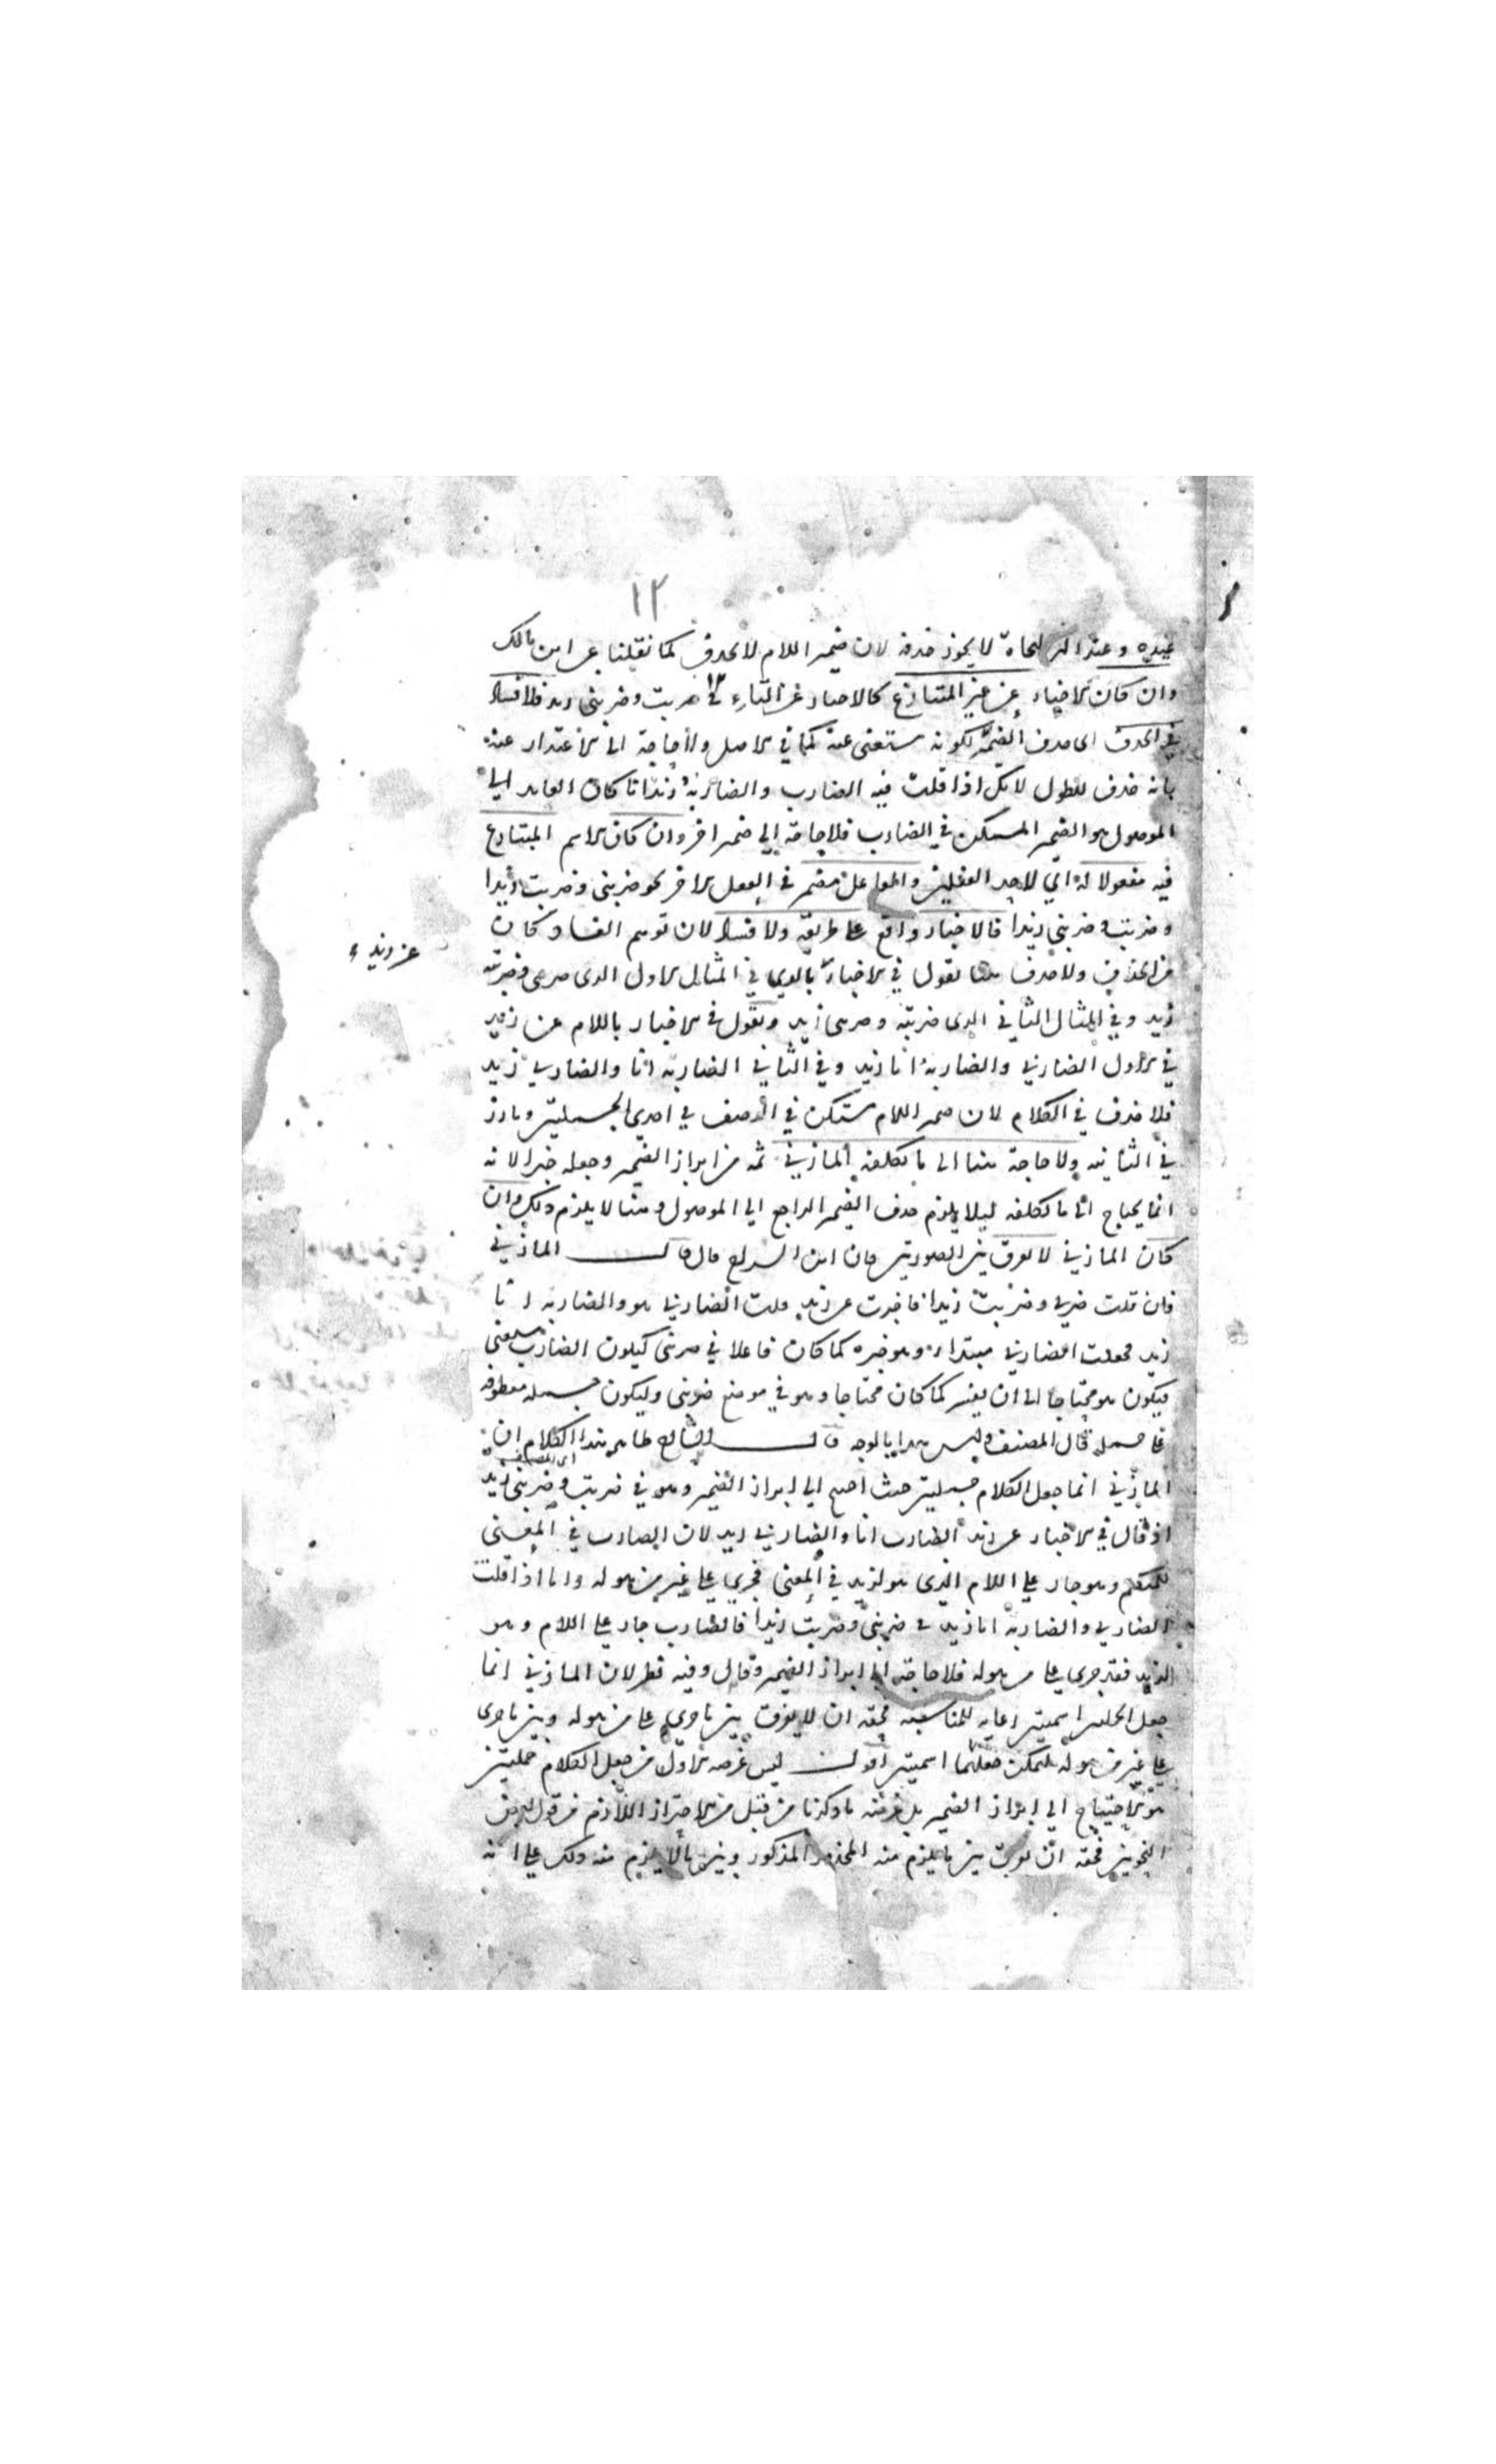 ١٢
عنده وعند اكثر النحاة لا يجوز حذفه لان ضمير اللام لا يحذف كما نقلنا عن ابن مالك
وان كان الاخبار عن غير المتنازع كالاخبار عن التاء في ضربت وضربني زيد فلا فساد
في الحذف اي حذف الضمير لكونه مستغنى عنه كما في الاصل ولا حاجة الى الاعتذار عنه
بانه حذف للطول لانك اذا قلت فيه الضارب والضاربه زيد انا كان العايد الى
الموصول هو الضمير المستكن في الضارب فلا حاجة الى ضمير اخر وان كان الاسم المتنازع
فيه مفعولا له اي لاحد الفعلين والفاعل مضمر في الفعل الاخر نحو ضربني وضربت زيدا
وضربت وضربني زيدا فالاخبار واقع على طريقه ولا فساد لان توهم الفساد كان
من الحذف ولا حذف هنا تقول في الاخبار بالذي في المثال الاول الذي ضربني وضربته
زيد وفي المثال الثاني الذي ضربته وضربني زيد وتقول في الاخبار باللام عن زيد
في الاول الضاربي والضاربه انا زيد وفي الثاني الضاربه انا والضاربي زيد
فلا حذف في الكلام لان ضمير اللام مستكن في الوصف في احدي الجملتين وبارز
في الثانيه ولا حاجة هنا الى ما تكلفه المازني ثمه من ابراز الضمير وجعله خبرا لانه
انما يحتاج الى ما تكلفه ليلا يلزم حذف الضمير الراجع الى الموصول وهنا لا يلزم ذلك وان
كان المازني لا يفرق بين الصورتين فان ابن السراج قال قال المازني
فان قلت ضربني وضربت زيدا فاخبرت عن زيد قلت الضاربي هو والضاربه انا
زيد فجعلت الضاربي مبتدا وهو خبره كما كان فاعلا في ضربني ليكون الضارب بمعنى
فيكون هو محتاجا الى ان يفسر كما كان محتاجا وهو في موضع ضربني وليكون جملة معطوفة
على جملة قال المصنف وليس هذا بالوجه قال الشارح ظاهر هذا الكلام ان
المازني انما جعل الكلام جملتين حيث احتيج الى ابراز الضمير وهو في ضربت وضربني زيد
اذ قال في الاخبار عن زيد الضارب انا والضاربي زيد لان الضارب في المعنى
للمتكلم وهو جار على اللام الذي هو لزيد في المعنى فجري على غير من هو له واما اذا قلت
الضاربي والضاربه انا زيد في ضربني وضربت زيدا فالضارب جار على اللام وهو
لزيد فقد جري على من هو له فلا حاجة الى ابراز الضمير وقال وفيه نظر لان المازني انما
جعل الجملتين اسميتين رعاية للمناسبة فحقه ان لا يفرق بين ما جري على من هو له وبين ما جري
على غير من هو له ليمكن جعلهما اسميتين اقول ليس غرضه الاول من جعل الكلام جملتين
هو الاحتياج الى ابراز الضمير بل غرضه ما ذكرنا من قبل من الاحتراز اللازم من قول
النحويين فحقه ان يفرق بين ما يلزم منه المحذور المذكور وبين ما لا يلزم منه ذلك على انه
عن زيد